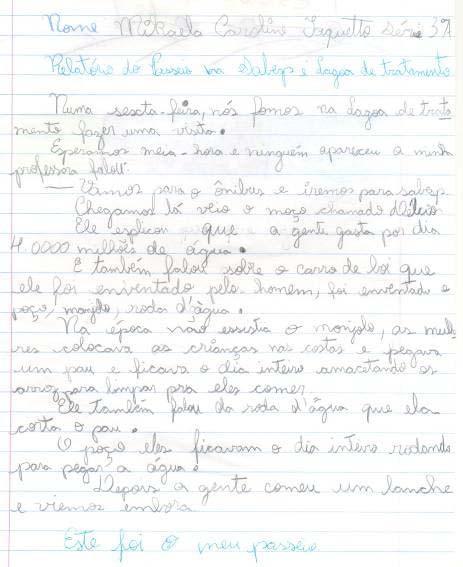 Nome Mikaela Caroline Jaquetto série 3ª
Relatório do Passeio na Sabesp e Lagoa de tratamento
Numa sesxta-feira, nós fomos na Lagoa de trata
mento fazer uma visita.
Esperamos meia-hora e ninguém apareceu a minha
professora falou:
— Vamos para o ônibus e iremos para sabesp.
Chegamos lá veio o moço chamado Délcio
Ele esplicou que a gente gasta por dia
4.0000 milhões de água.
E também falou sobre o carro de boi que
ele foi enventado pelo homem, foi enventado o
poço, monjolo, roda d'água.
Na época não essistia o monjolo, as mulhe
res colocava as crianças nas costas e pegava
um pau e ficava o dia inteiro amacetando os
arroz para limpar pra eles comer.
Ele também falou da roda d'água que ela
corta o pau.
O poço eles ficavam o dia intero rodando
para pegar a água.
Depois a gente comeu um lanche
e viemos embora
Este foi o meu passeio